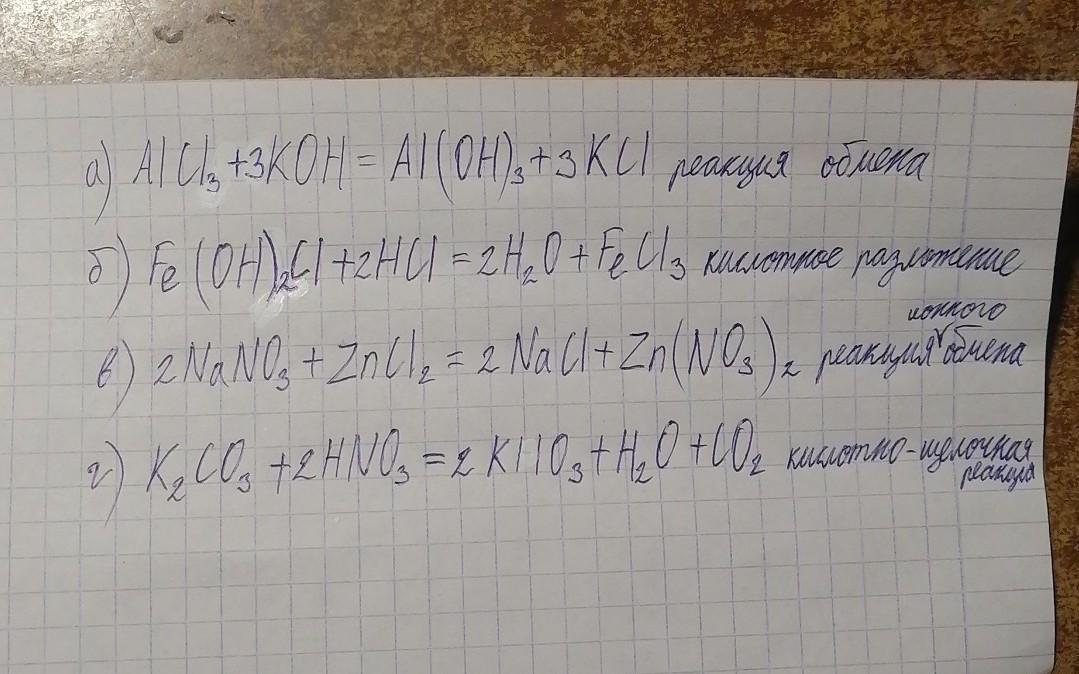 а) AlCl₃+3KOH = Al(OH)₃+3KCl реакция обмена
б) Fe(OH)₂Cl+2HCl = 2H₂O+FeCl₃ кислотное разложение
ионного
в) 2NaNO₃+ZnCl₂ = 2NaCl+Zn(NO₃)₂ реакция обмена
г) K₂CO₃+2HNO₃ = 2KNO₃+H₂O+CO₂ кислотно-щелочная
реакция